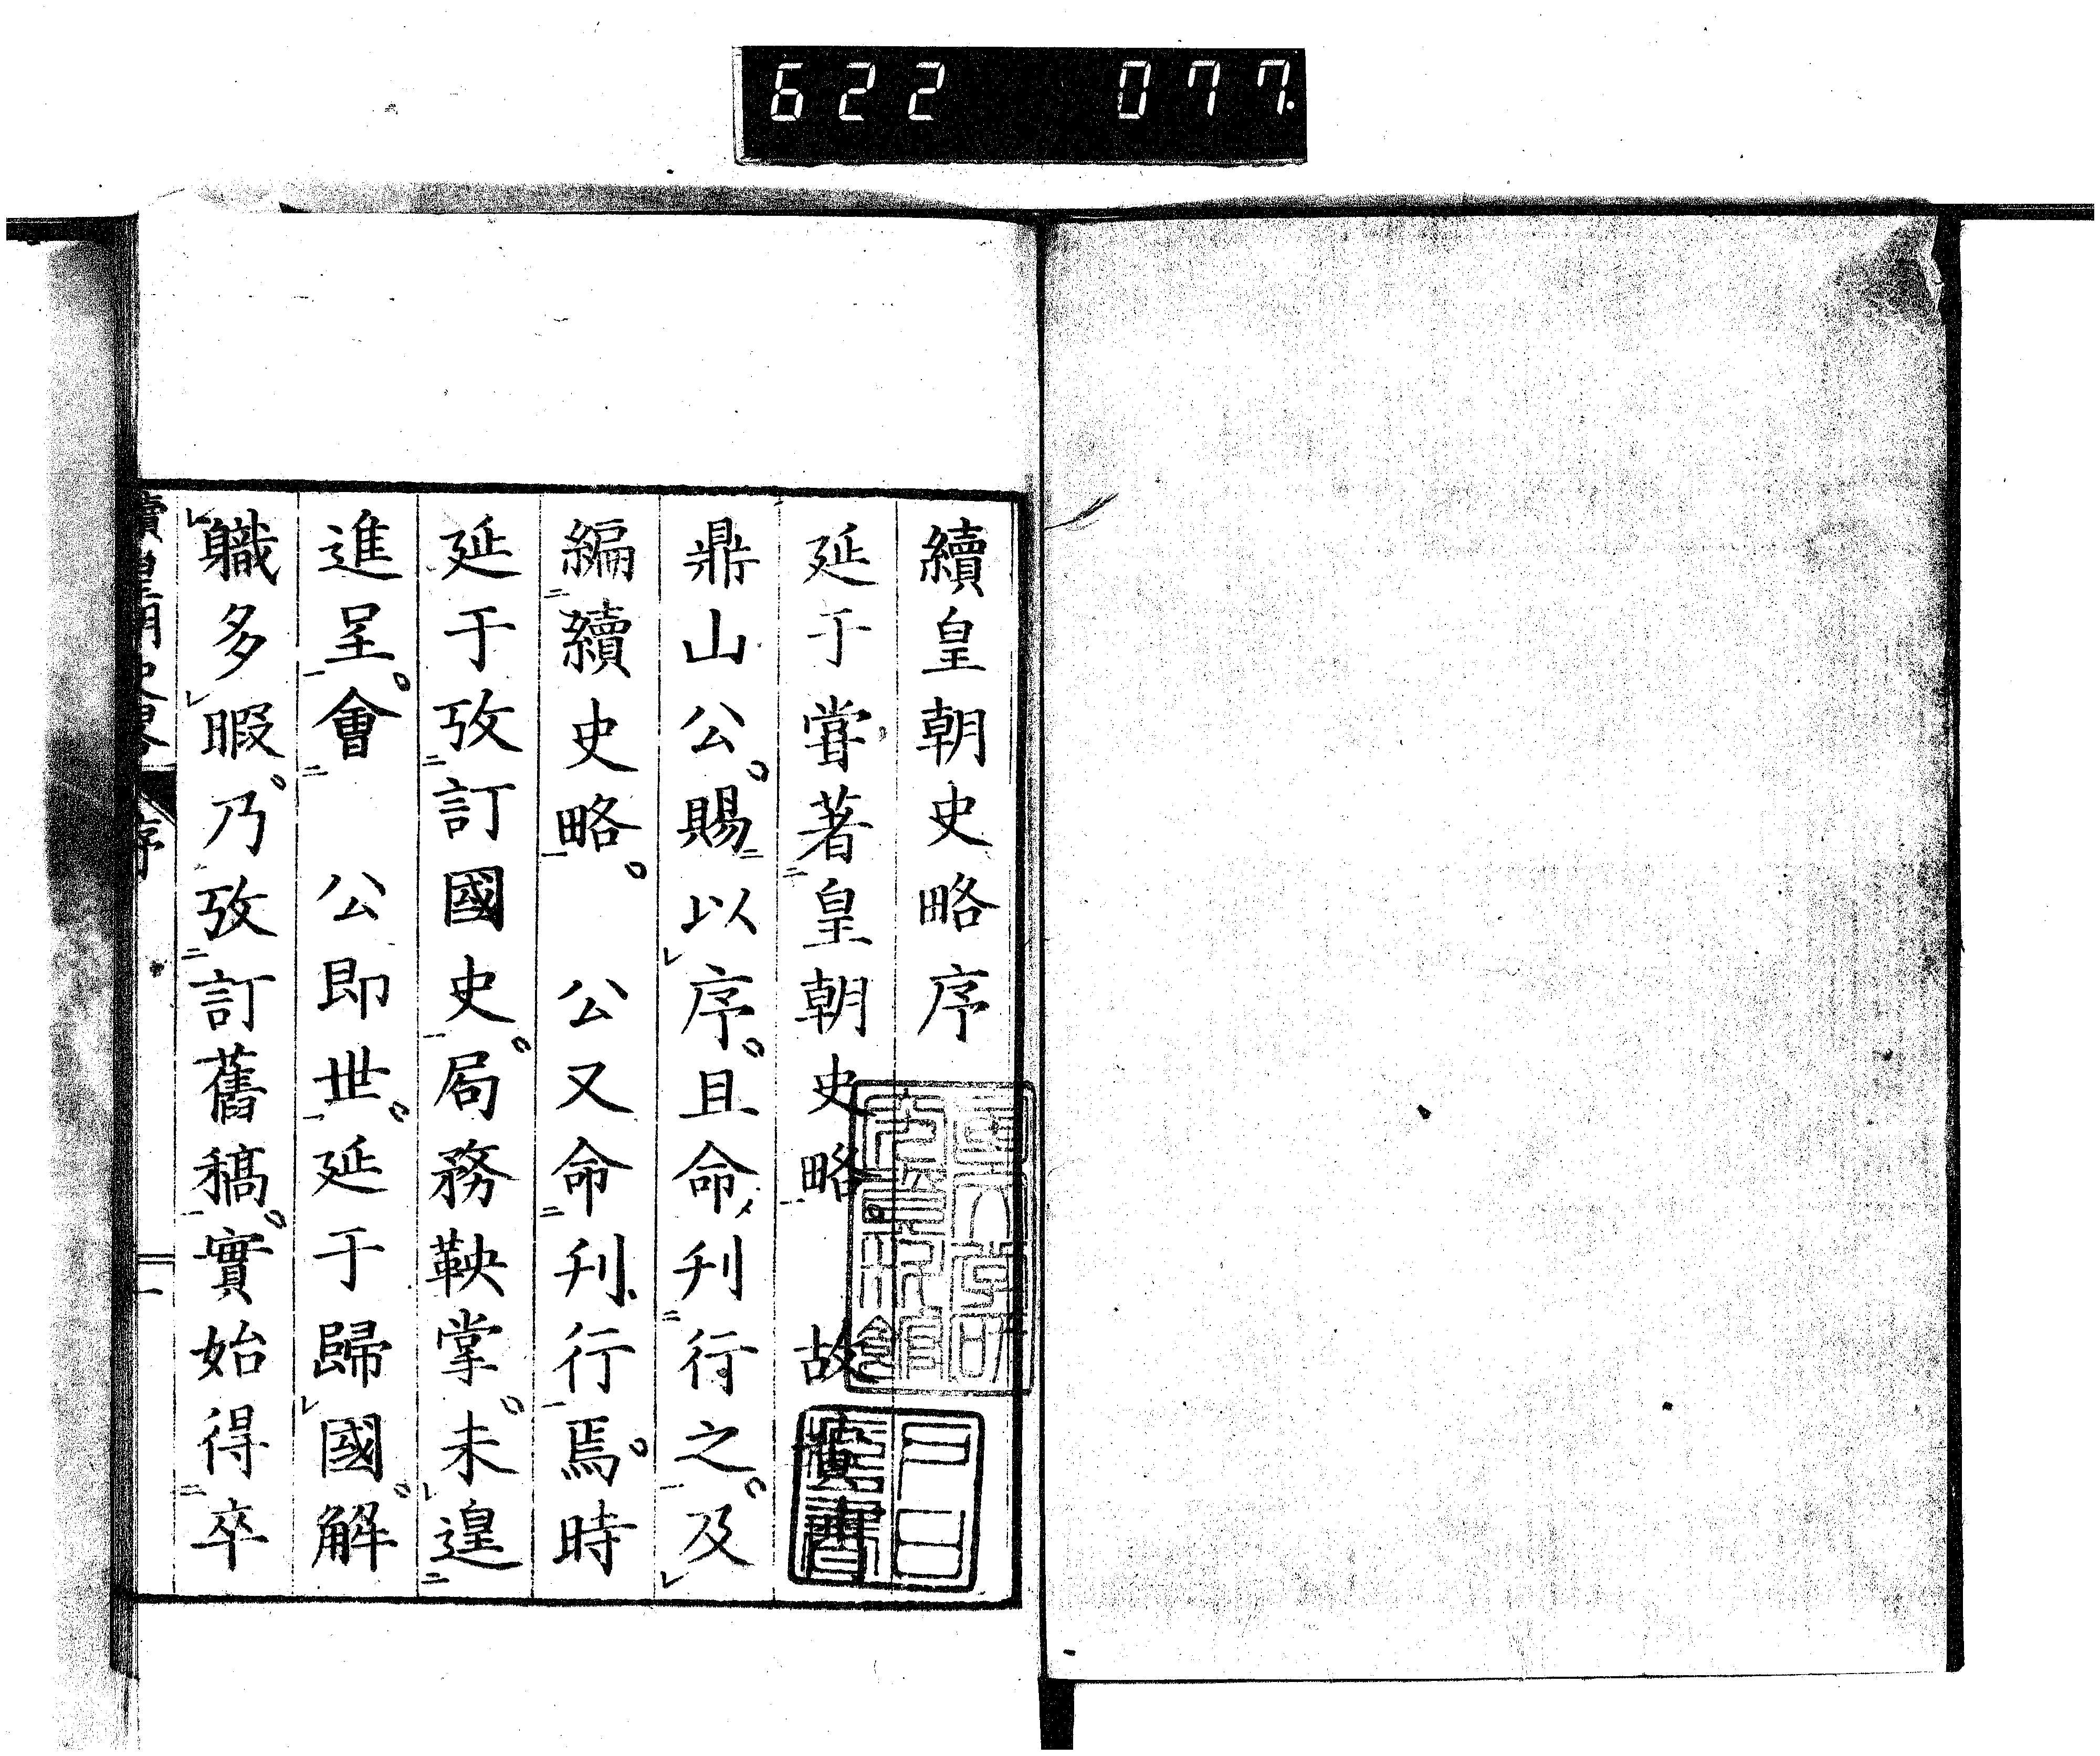 622 077.
續皇朝史略序
延于嘗著皇朝史略 故
鼎山公賜以序且命刋行之及
編續史略 公又命刋行焉時
延于攷訂國史局務鞅掌未遑
進呈會 公即世延于歸國解
職多暇乃攷訂舊稿實始得卒
續皇朝史略 序 一